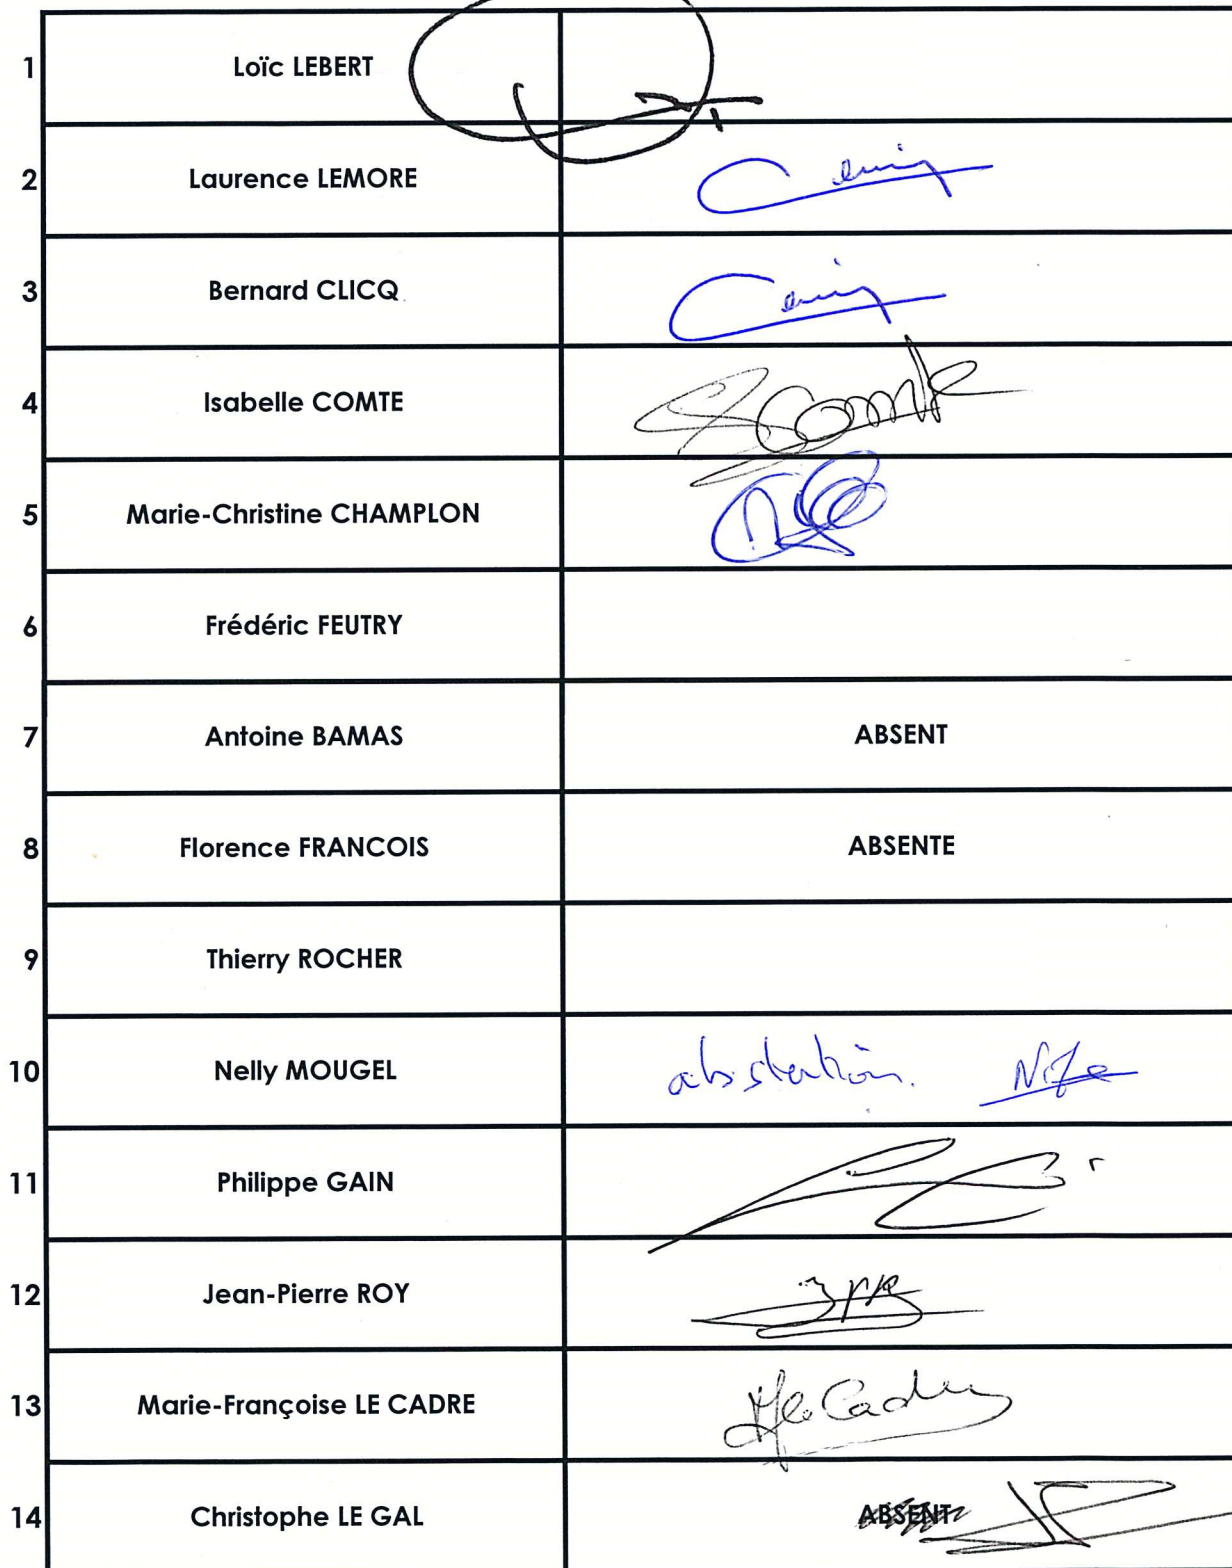 1 Loïc LEBERT
2 Laurence LEMORE
3 Bernard CLICQ
4 Isabelle COMTE Comte
5 Marie-Christine CHAMPLON
6 Frédéric FEUTRY
7 Antoine BAMAS ABSENT
8 Florence FRANCOIS ABSENTE
9 Thierry ROCHER
10 Nelly MOUGEL abstention.
11 Philippe GAIN
12 Jean-Pierre ROY
13 Marie-Françoise LE CADRE Le Cadre
14 Christophe LE GAL ABSENT